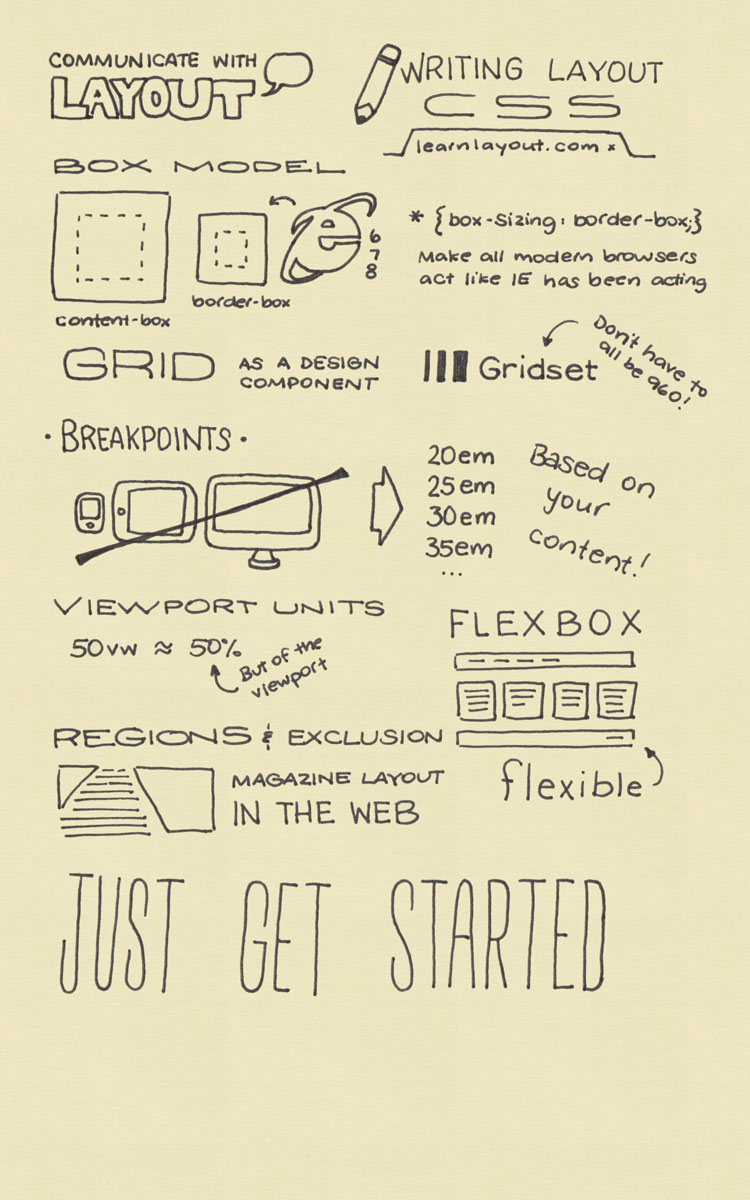 COMMUNICATE WITH
LAYOUT
WRITING LAYOUT
CSS
learnlayout.com x
BOX MODEL
content-box
border-box
6
7
8
* {box-sizing: border-box;}
Make all modern browsers
act like IE has been acting
GRID
AS A DESIGN
COMPONENT
Gridset
Don't have to
all be 960!
• BREAKPOINTS •
20em
25em
30em
35em
...
Based on
your
content!
VIEWPORT UNITS
50vw ≈ 50%
But of the
viewport
FLEXBOX
flexible
REGIONS & EXCLUSION
MAGAZINE LAYOUT
IN THE WEB
JUST GET STARTED